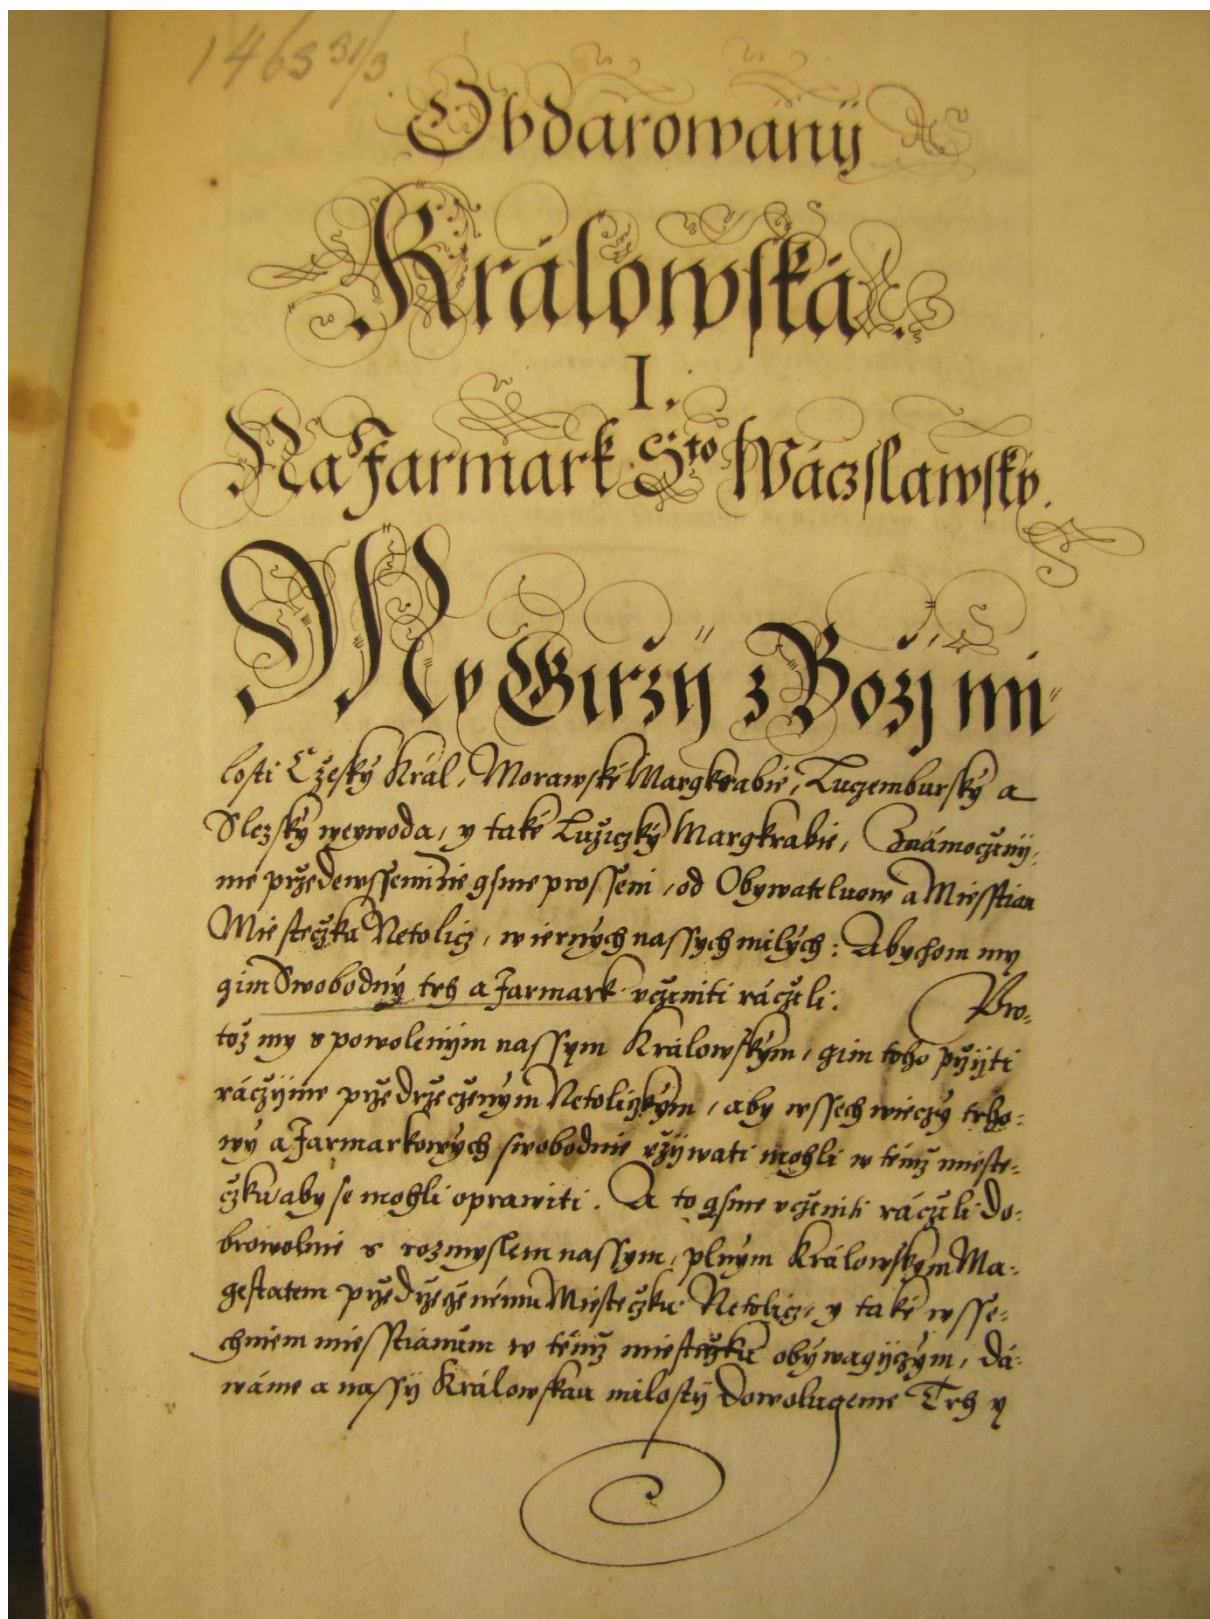 1463 31/3
Obdarowánÿ
Králowská.
I.
Na Jarmark Sto Wáczslawský.
My Girzÿ z Božj mi-
losti Cžeský Král, Morawské Margkrabie, Luczemburský a
Slezský weywoda, y také Lužiczký Margkrabie, Známoczinÿ-
me przedewssemi že gsme prosseni, od Obywateluow a Miesstian
Miesteczka Netolicz, wierných nassych milých: Abychom my
gim Swobodný trh a Jarmark vcziniti ráczili. Pro-
tož my s powolenÿm nassym Králowským, gim toho přÿti
ráczÿme przedrzeczeným Netoliczkým, aby wssech wieczÿ trho-
wý a Jarmarkowých swobodnie vžÿwati mohli w témž mieste-
czku aby se mohli oprawiti. A to gsme vcziniti ráczili do-
browolnie s rozmyslem nassym, plným Králowským Ma-
gestatem przedrzeczenému Miesteczku Netolicz, y také wsse-
chniem miesstianům w témž miesteczku obýwagÿczým, dá-
wáme a nassÿ Králowskau milostÿ dowolugeme Trh y